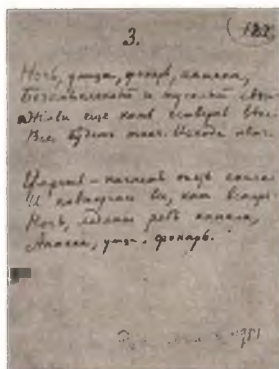 3.
Ночь, улица, фонарь, аптека,
Безсмысленный и тусклый свет
Живи еще хоть четверть века
Все будет так. Исхода нет.
Умрешь — начнешь опять сначала
И повторится все, как встарь
Ночь, ледяная рябь канала,
Аптека, улица, фонарь.